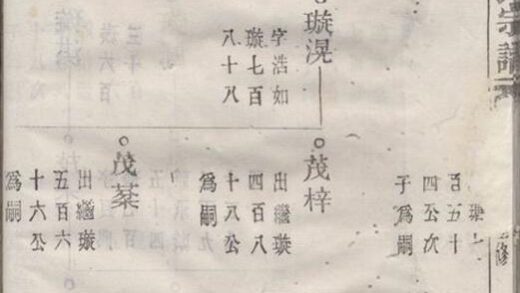 宗譜
修
百五十
四公次
子爲嗣
璇滉
字浩如
璇七百
八十八
茂梓
出繼璇
四百八
十八公
爲嗣
茂棻
出繼璇
五百六
十六公
爲嗣